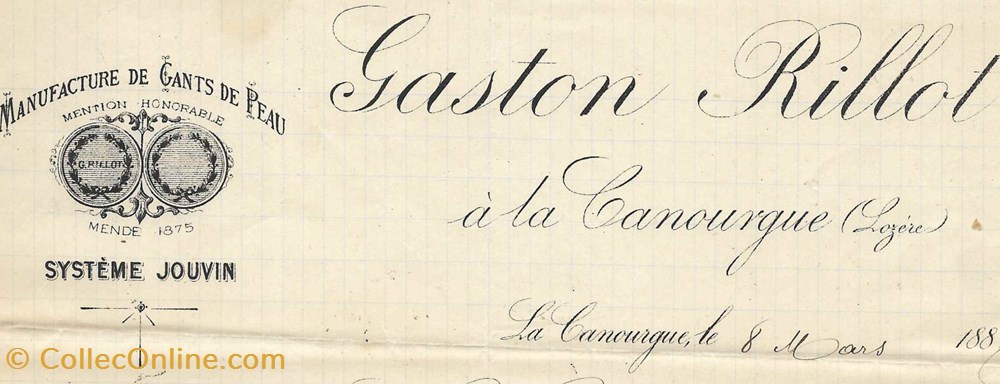 Manufacture de Gants de Peau
MENTION HONORABLE
G. RILLOT
MENDE 1875
SYSTÈME JOUVIN
Gaston Rillot
à la Canourgue (Lozère)
La Canourgue, le 8 Mars 188
© CollecOnline.com